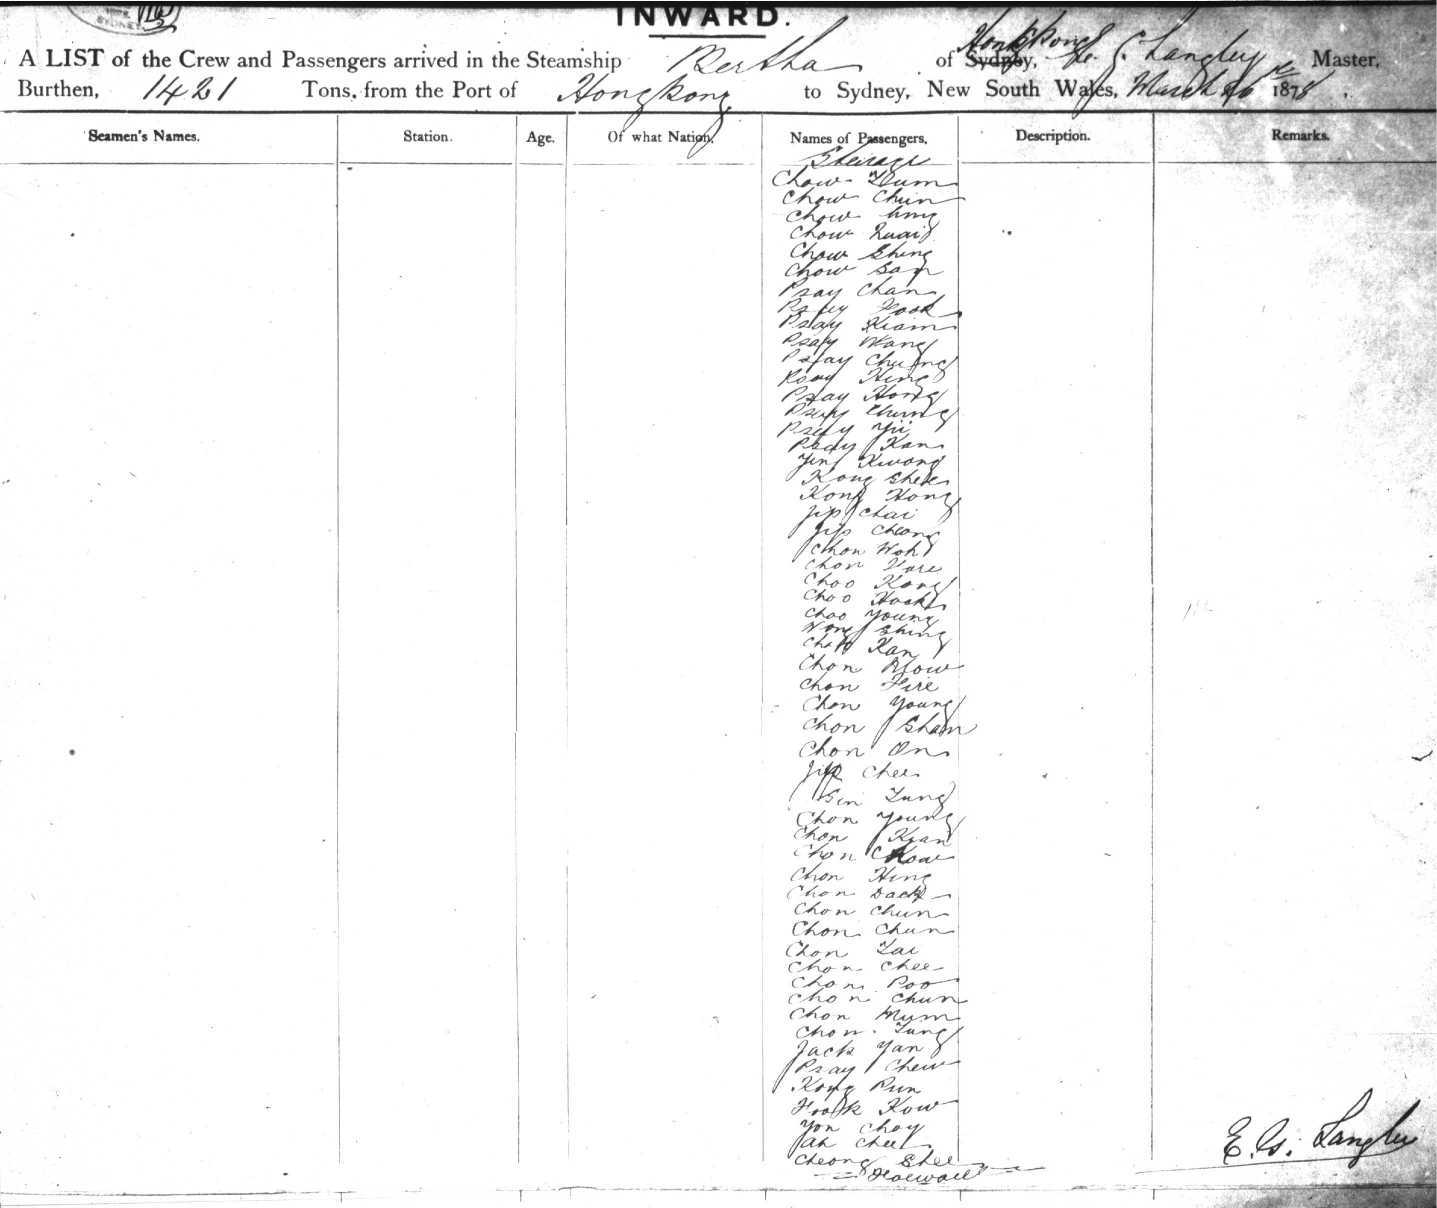 INWARD.
A LIST of the Crew and Passengers arrived in the Steamship Bertha of Sydney, Hongkong Langley Master,
Burthen, 1421 Tons, from the Port of Hongkong to Sydney, New South Wales, March 1878.
Seamen's Names. Station. Age. Of what Nation. Names of Passengers, Description. Remarks.
Steerage
Chow
Chow Chun
Chow
Chow
Chow Shing
Chow Sam
Psay Chan
Psay Fook
Psay Kiam
Psay Wang
Psay Chung
Psay Hing
Psay Hong
Psay Chung
Psay Yii
Psay Kan
Yin Kwong
Kong Shee
Kong Hong
Jip Chai
Jip Cheong
Chon Woh
Chon
Choo Kong
Choo Hook
Choo Young
Wong Shing
Kan
Chon Mow
Chon Fire
Chon Young
Chon Sham
Chon On
Jip Chee
Sin Lung
Chon Young
Chon Kian
Chon Chow
Chon Hing
Chon Dack
Chon Chun
Chon Chun
Chon Lai
Chon Chee
Chon Poo
Chon Chun
Chon Mum
Chon Lung
Jack Yan
Psay Chew
Kong Pun
Fook Kow
Yon Choy
Ah Chee
Cheong Shee
Forward
E. G. Langley